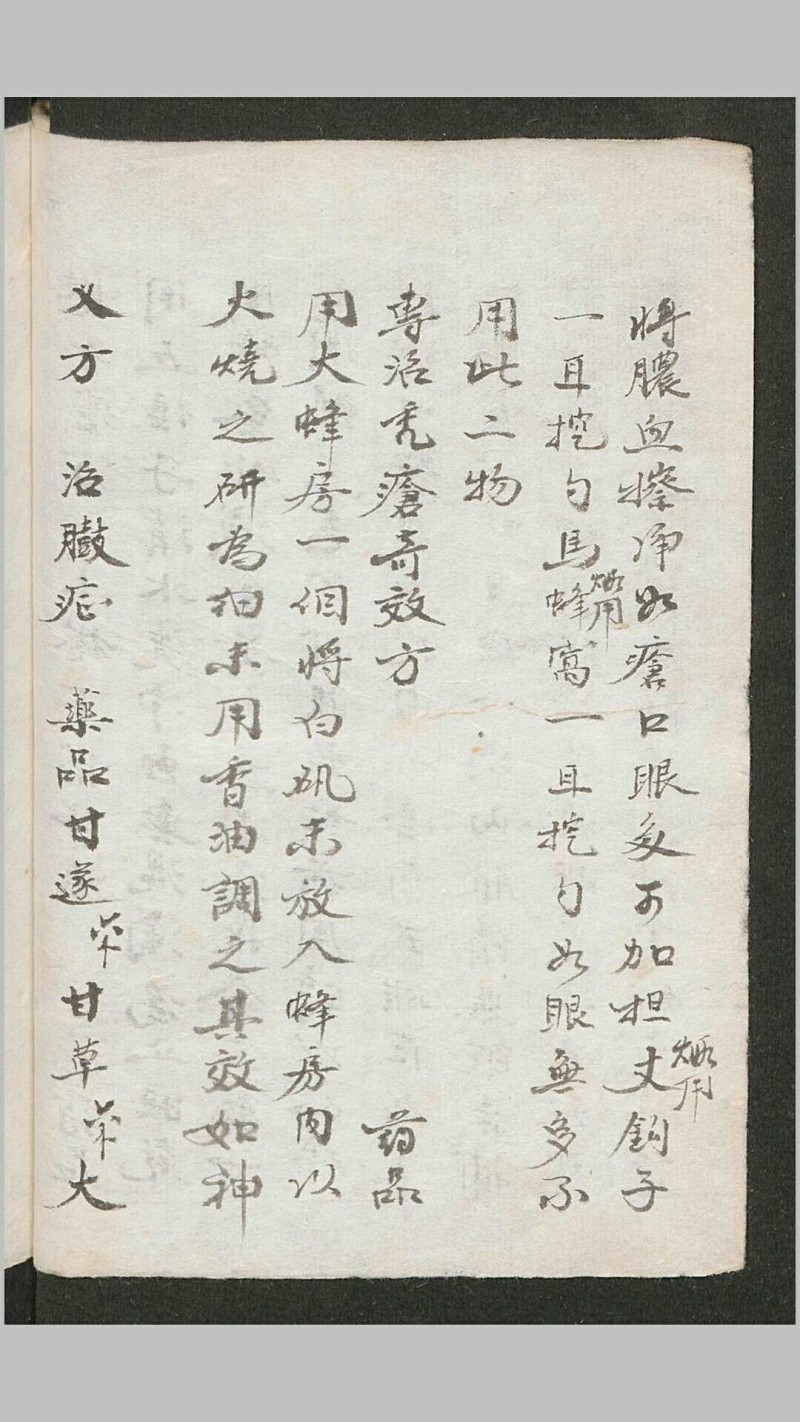 將膿血擦净如瘡口眼多可加担丈鈎子
煅用
一耳挖勺馬蜂窩一耳挖勺如眼無多不
煅用
用此二物
專治禿瘡奇效方 药品
用大蜂房一個將白矾末放入蜂房内以
火燒之研為细末用香油調之其效如神
又方 治臌症 藥品甘遂 甘草 大